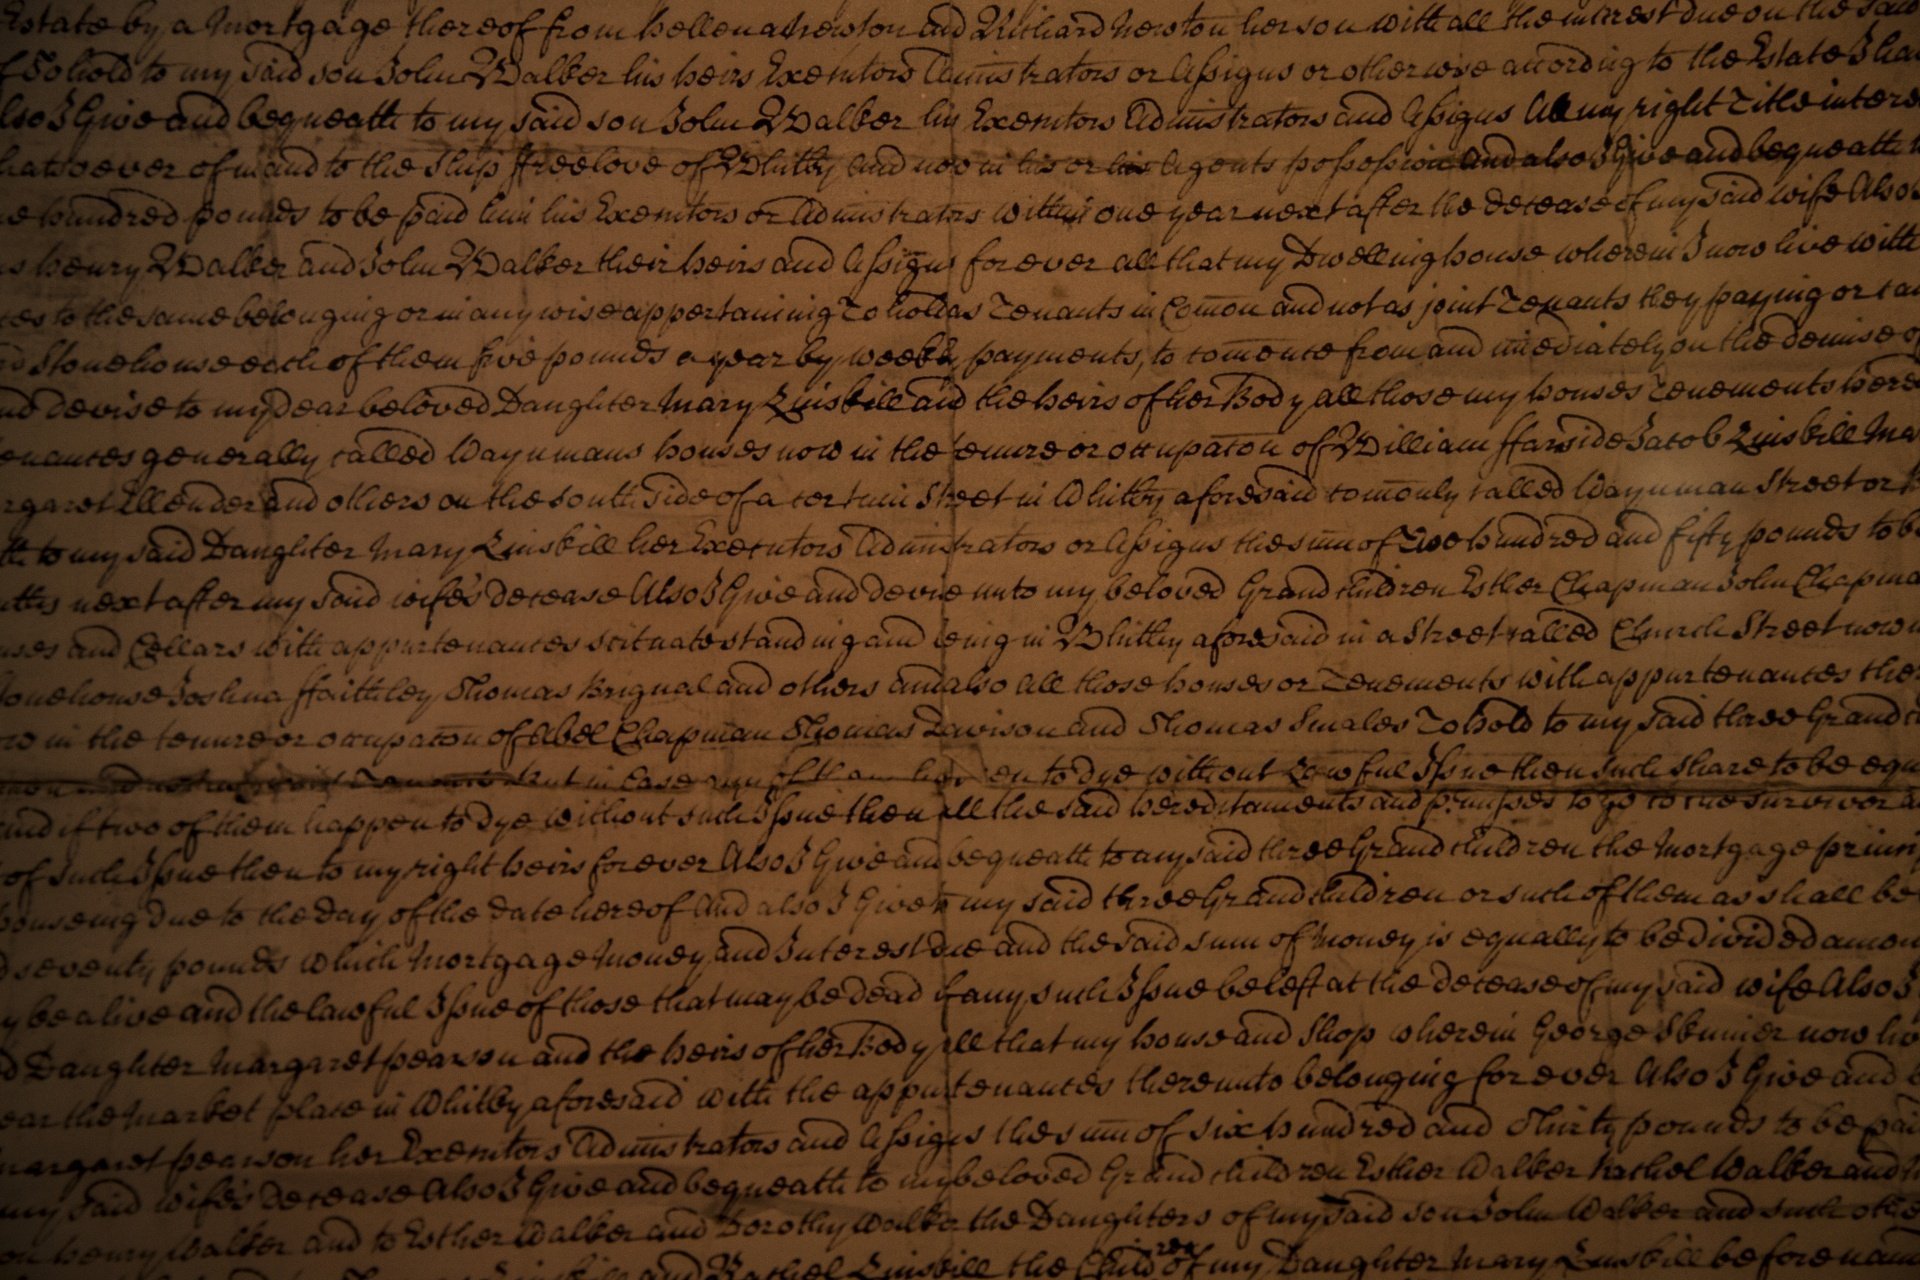 Estate by a Mortgage thereof from Hellena Newton and Richard Newton her son with all the interest due on the said
To hold to my said son John Walker his heirs Executors Administrators or Assigns or otherwise according to the Estate I ha
also I Give and bequeath to my said son John Walker his Executors Administrators and Assigns All my right Title intere
hatsoever of in and to the Ship ffreelove of Whitby and now in his or his Agents possession and also I Give and bequeath
e hundred pounds to be paid him his Executors or Administrators within one year next after the decease of my said wife Also
s henry Walker and John Walker their heirs and Assigns for ever all that my Dwelling house wherein I now live with
ces to the same belonging or in any wise appertaining To hold as Tenants in Comon and not as joint Tenants they paying or
Stonehouse each of them five pounds a year by weekly payments, to comence from and imediately on the demise of
nd devise to my dear beloved Daughter Mary Linskill and the heirs of her Body all those my houses Tenements here
enances generally called Waynmans houses now in the tenure or occupaton of William ffarside Jacob Linskill Ma
rgaret Ellender and others on the south side of a certain Street in Whitby aforesaid comonly called Waynman Street or
th to my said Daughter Mary Linskill her Executors Administrators or Assigns the sum of Two hundred and fifty pounds to b
nths next after my said wife's decease Also I Give and devie unto my beloved Grand children Esther Chapman John Chapma
uses and Cellars with appurtenances scituate standing and being in Whitby aforesaid in a Street called Church Street now
tonehouse Joshua ffaithley Thomas Brignal and others and also All those houses or Tenements with appurtenances the
ow in the tenure or occupaton of Abel Chapman Thomas Davison and Thomas Smales To hold to my said three Grand
mon and not as joint Tenants but in Case any of them happen to dye without Lawful Issue then such share to be equ
and if two of them happen to dye without such Issue then all the said hereditaments and premisses to go to the survivor
of such Issue then to my right heirs for ever Also I Give and bequeath to my said three Grand children the Mortgage princi
houseing due to the day of the date hereof And also I Give to my said three Grand children or such of them as shall be
d seventy pounds which Mortgage Money and Interest due and the said sum of money is equally to be divided amon
y be alive and the lawful Issue of those that may be dead if any such Issue be left at the decease of my said wife Also I
d Daughter Margaret pearson and the heirs of her Body all that my house and Shop wherein George Skinner now liv
ear the Market place in Whitby aforesaid with the appurtenances thereunto belonging for ever Also I Give and
margaret pearson her Executors Administrators and Assigns the sum of six hundred and Thirty pounds to be paid
my said wife's decease Also I Give and bequeath to my beloved Grand children Esther Walker Rachel Walker and
on henry Walker and to Esther Walker and Dorothy Walker the Daughters of my said son John Walker and such othe
and Rachel Linskill the Children of my Daughter Mary Linskill before nam